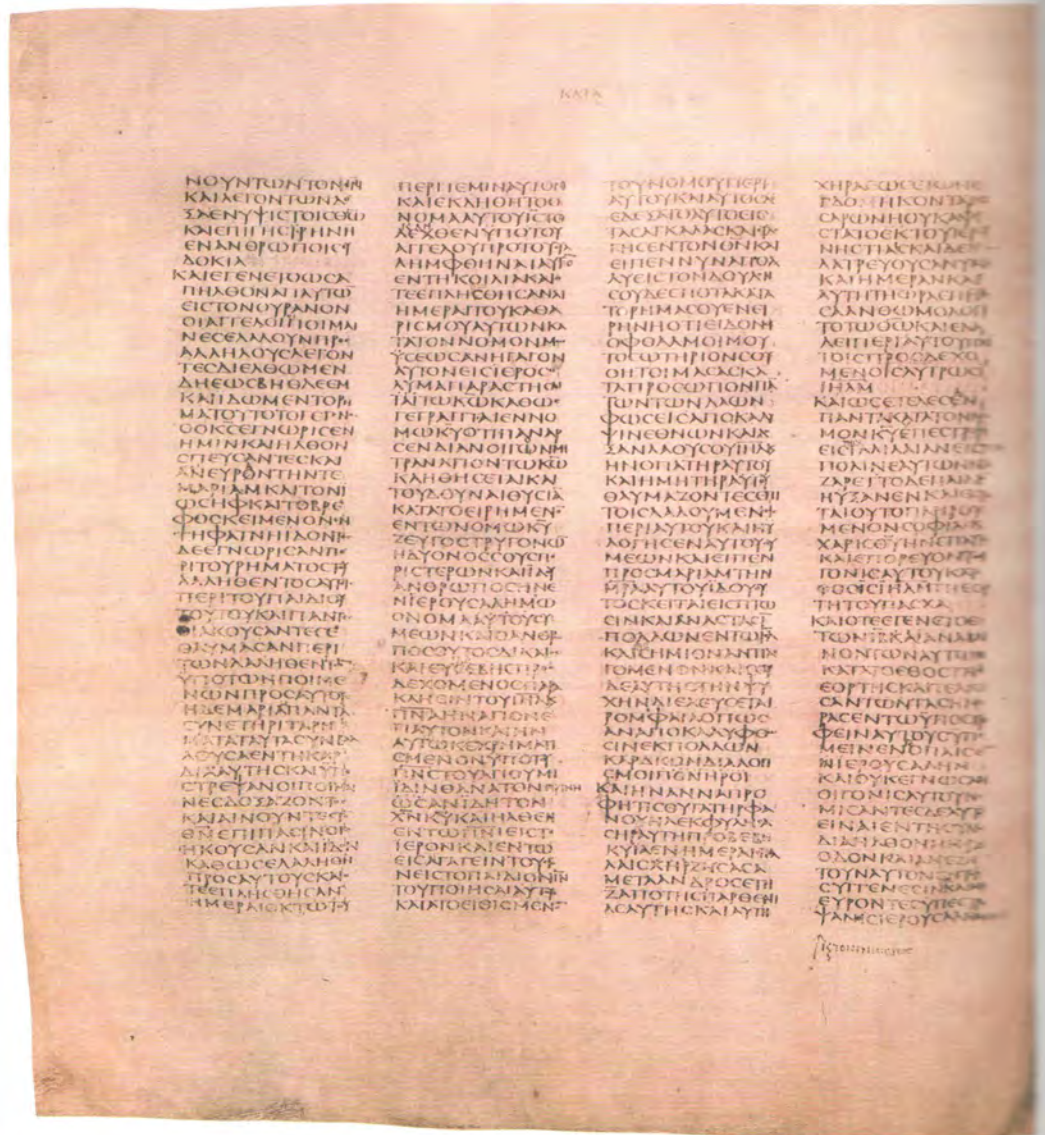 ΚΑΤΑ
ΝΟΥΝΤΩΝΤΟΝΘΝ
ΚΑΙΛΕΓΟΝΤΩΝΔΟ
ΞΑΕΝΥΨΙϹΤΟΙϹΘΩ
ΚΑΙΕΠΙΓΗϹΙΡΗΝΗ
ΕΝΑΝΘΡΩΠΟΙϹΕΥ
ΔΟΚΙΑ
ΚΑΙΕΓΕΝΕΤΟΩϹΑ
ΠΗΛΘΟΝΑΠΑΥΤΩ
ΕΙϹΤΟΝΟΥΡΑΝΟΝ
ΟΙΑΓΓΕΛΟΙΟΙΠΟΙΜΑΙ
ΝΕϹΕΛΑΛΟΥΝΠΡΟϹ
ΑΛΛΗΛΟΥϹΛΕΓΟΝ
ΤΕϹΔΙΕΛΘΩΜΕΝ
ΔΗΕΩϹΒΗΘΛΕΕΜ
ΚΑΙΙΔΩΜΕΝΤΟΡΗ
ΜΑΤΟΥΤΟΤΟΓΕΓΟΝ
ΟΟΚϹΕΓΝΩΡΙϹΕΝ
ΗΜΙΝΚΑΙΗΛΘΟΝ
ϹΠΕΥϹΑΝΤΕϹΚΑΙ
ΑΝΕΥΡΟΝΤΗΝΤΕ
ΜΑΡΙΑΜΚΑΙΤΟΝΙ
ΩϹΗΦΚΑΙΤΟΒΡΕ
ΦΟϹΚΕΙΜΕΝΟΝΕΝ
ΤΗΦΑΤΝΗΙΔΟΝΤΕϹ
ΔΕΕΓΝΩΡΙϹΑΝΠΕ
ΡΙΤΟΥΡΗΜΑΤΟϹΤΟΥ
ΛΑΛΗΘΕΝΤΟϹΑΥΤΟΙϹ
ΠΕΡΙΤΟΥΠΑΙΔΙΟΥ
ΤΟΥΤΟΥΚΑΙΠΑΝΤΕϹ
ΟΙΑΚΟΥϹΑΝΤΕϹΕ
ΘΑΥΜΑϹΑΝΠΕΡΙ
ΤΩΝΛΑΛΗΘΕΝΤΩ
ΥΠΟΤΩΝΠΟΙΜΕ
ΝΩΝΠΡΟϹΑΥΤΟΥϹ
ΗΔΕΜΑΡΙΑΠΑΝΤΑ
ϹΥΝΕΤΗΡΙΤΑΡΗ
ΜΑΤΑΤΑΥΤΑϹΥΝΒΑ
ΛΟΥϹΑΕΝΤΗΚΑΡ
ΔΙΑΑΥΤΗϹΚΑΙΥΠΕ
ϹΤΡΕΨΑΝΟΙΠΟΙΜΕ
ΝΕϹΔΟΞΑΖΟΝΤΕϹ
ΚΑΙΑΙΝΟΥΝΤΕϹΤΟ
ΘΝΕΠΙΠΑϹΙΝΟΙϹ
ΗΚΟΥϹΑΝΚΑΙΙΔΟΝ
ΚΑΘΩϹΕΛΑΛΗΘΗ
ΠΡΟϹΑΥΤΟΥϹΚΑΙΟ
ΤΕΕΠΛΗϹΘΗϹΑΝ
ΗΜΕΡΑΙΟΚΤΩΤΟΥ
ΠΕΡΙΤΕΜΙΝΑΥΤΟΝ
ΚΑΙΕΚΛΗΘΗΤΟΟ
ΝΟΜΑΑΥΤΟΥΙϹΤΟ
ΛΕΧΘΕΝΥΠΟΤΟΥ
ΑΓΓΕΛΟΥΠΡΟΤΟΥϹΥ
ΛΗΜΦΘΗΝΑΙΑΥΤΟ
ΕΝΤΗΚΟΙΛΙΑΚΑΙΟ
ΤΕΕΠΛΗϹΘΗϹΑΝΑΙ
ΗΜΕΡΑΙΤΟΥΚΑΘΑ
ΡΙϹΜΟΥΑΥΤΩΝΚΑ
ΤΑΤΟΝΝΟΜΟΝΜΩ
ΥϹΕΩϹΑΝΗΓΑΓΟΝ
ΑΥΤΟΝΕΙϹΙΕΡΟϹΟ
ΛΥΜΑΠΑΡΑϹΤΗϹΑΙ
ΤΩΚΩΚΑΘΩϹ
ΓΕΓΡΑΠΤΑΙΕΝΝΟ
ΜΩΚΥΟΤΙΠΑΝΑΡ
ϹΕΝΔΙΑΝΟΙΓΩΝΜΗ
ΤΡΑΝΑΓΙΟΝΤΩΚΩ
ΚΛΗΘΗϹΕΤΑΙΚΑΙ
ΤΟΥΔΟΥΝΑΙΘΥϹΙΑ
ΚΑΤΑΤΟΕΙΡΗΜΕΝΟ
ΕΝΤΩΝΟΜΩΚΥ
ΖΕΥΓΟϹΤΡΥΓΟΝΩ
ΗΔΥΟΝΟϹϹΟΥϹΠΕ
ΡΙϹΤΕΡΩΝΚΑΙΙΔΟΥ
ΑΝΘΡΩΠΟϹΗΝΕ
ΝΙΕΡΟΥϹΑΛΗΜΩ
ΟΝΟΜΑΑΥΤΟΥϹΥ
ΜΕΩΝΚΑΙΟΑΝΘΡ
ΠΟϹΟΥΤΟϹΔΙΚΑΙ
ΚΑΙΕΥϹΕΒΗϹΠΡΟϹ
ΔΕΧΟΜΕΝΟϹΠΑΡΑ
ΚΛΗϹΙΝΤΟΥΙΗΛΚ
ΠΝΑΗΝΑΓΙΟΝΕ
ΠΑΥΤΟΝΚΑΙΗΝ
ΑΥΤΩΚΕΧΡΗΜΑΤΙ
ϹΜΕΝΟΝΥΠΟΤΟΥ
ΠΝϹΤΟΥΑΓΙΟΥΜΗ
ΙΔΙΝΘΑΝΑΤΟΝΠΡΙΝΗ
ΩϹΑΝΙΔΗΤΟΝ
ΧΝΚΥΚΑΙΗΛΘΕΝ
ΕΝΤΩΠΝΙΕΙϹΤΟ
ΙΕΡΟΝΚΑΙΕΝΤΩ
ΕΙϹΑΓΑΓΕΙΝΤΟΥϹ
ΝΕΙϹΤΟΠΑΙΔΙΟΝΙΝ
ΤΟΥΠΟΙΗϹΑΙΑΥΤΟΥϹ
ΚΑΤΑΤΟΕΙΘΙϹΜΕΝΟ
ΤΟΥΝΟΜΟΥΠΕΡΙ
ΑΥΤΟΥΚΑΙΑΥΤΟϹΕ
ΔΕΞΑΤΟΑΥΤΟΕΙϹ
ΤΑϹΑΓΚΑΛΑϹΚΑΙΕΥ
ΓΗϹΕΝΤΟΝΘΝΚΑΙ
ΕΙΠΕΝΝΥΝΑΠΟΛ
ΛΥΕΙϹΤΟΝΔΟΥΛΟΝ
ϹΟΥΔΕϹΠΟΤΑΚΑΤΑ
ΤΟΡΗΜΑϹΟΥΕΝΕΙ
ΡΗΝΗΟΤΙΕΙΔΟΝΟΙ
ΟΦΘΑΛΜΟΙΜΟΥ
ΤΟϹΩΤΗΡΙΟΝϹΟΥ
ΟΗΤΟΙΜΑϹΑϹΚΑ
ΤΑΠΡΟϹΩΠΟΝΠΑ
ΤΩΝΤΩΝΛΑΩΝ
ΦΩϹΕΙϹΑΠΟΚΑΛΥ
ΨΙΝΕΘΝΩΝΚΑΙΔΟ
ΞΑΝΛΑΟΥϹΟΥΙΗΛΚ
ΗΝΟΠΑΤΗΡΑΥΤΟΥ
ΚΑΙΗΜΗΤΗΡΑΥΤΟΥ
ΘΑΥΜΑΖΟΝΤΕϹΕΠΙ
ΤΟΙϹΛΑΛΟΥΜΕΝΟΙϹ
ΠΕΡΙΑΥΤΟΥΚΑΙΕΥ
ΛΟΓΗϹΕΝΑΥΤΟΥϹϹΥ
ΜΕΩΝΚΑΙΕΙΠΕΝ
ΠΡΟϹΜΑΡΙΑΜΤΗΝ
ΜΡΑΑΥΤΟΥΙΔΟΥΟΥ
ΤΟϹΚΕΙΤΑΙΕΙϹΠΤΩ
ϹΙΝΚΑΙΑΝΑϹΤΑϹΙ
ΠΟΛΛΩΝΕΝΤΩΙΗΛ
ΚΑΙϹΗΜΙΟΝΑΝΤΙΛΕ
ΓΟΜΕΝΟΝΚΑΙϹΟΥ
ΔΕΑΥΤΗϹΤΗΝΨΥ
ΧΗΝΔΙΕΛΕΥϹΕΤΑΙ
ΡΟΜΦΑΙΑΟΠΩϹ
ΑΝΑΠΟΚΑΛΥΦΘΩ
ϹΙΝΕΚΠΟΛΛΩΝ
ΚΑΡΔΙΩΝΔΙΑΛΟΓΙ
ϹΜΟΙΠΟΝΗΡΟΙ
ΚΑΙΗΝΑΝΝΑΠΡΟ
ΦΗΤΙϹΘΥΓΑΤΗΡΦΑ
ΝΟΥΗΛΕΚΦΥΛΗϹΑ
ϹΗΡΑΥΤΗΠΡΟΒΕΒΗ
ΚΥΙΑΕΝΗΜΕΡΑΙϹΠΟΛ
ΛΑΙϹΧΗΡΖΗϹΑϹΑ
ΜΕΤΑΑΝΔΡΟϹΕΤΗ
ΖΑΠΟΤΗϹΠΑΡΘΕΝΙ
ΑϹΑΥΤΗϹΚΑΙΑΥΤΗ
ΧΗΡΑΕΩϹΕΤΩΝΕ
ΒΔΟΜΗΚΟΝΤΑ
ϹΑΡΩΝΗΟΥΚΑΦΙ
ϹΤΑΤΟΕΚΤΟΥΙΕΡΟΥ
ΝΗϹΤΙΑϹΚΑΙΔΕΗ
ΛΑΤΡΕΥΟΥϹΑΝΥΚΤΑ
ΚΑΙΗΜΕΡΑΝΚΑΙ
ΑΥΤΗΤΗΩΡΑΕΠΙϹΤΑ
ϹΑΑΝΘΩΜΟΛΟΓΙ
ΤΟΤΩΘΩΚΑΙΕΛΑ
ΛΕΙΠΕΡΙΑΥΤΟΥΠΑϹΙ
ΤΟΙϹΠΡΟϹΔΕΧΟ
ΜΕΝΟΙϹΛΥΤΡΩϹΙ
ΙΗΛΜ
ΚΑΙΩϹΕΤΕΛΕϹΕΝ
ΠΑΝΤΑΚΑΤΑΤΟΝΝΟ
ΜΟΝΚΥΕΠΕϹΤΡΕΨΑ
ΕΙϹΤΗΝΓΑΛΙΛΑΙΑΝΕΙϹ
ΠΟΛΙΝΕΑΥΤΩΝΝΑ
ΖΑΡΕΤΤΟΔΕΠΑΙΔΙΟ
ΗΥΞΑΝΕΝΚΑΙΕΚΡΑ
ΤΑΙΟΥΤΟΠΛΗΡΟΥ
ΜΕΝΟΝϹΟΦΙΑΚΑΙ
ΧΑΡΙϹΘΥΗΝΕΠΑΥΤΟ
ΚΑΙΕΠΟΡΕΥΟΝΤΟΟΙ
ΓΟΝΙϹΑΥΤΟΥΚΑΤΕ
ΤΟϹΕΙϹΙΗΛΜΤΗΕΟΡ
ΤΗΤΟΥΠΑϹΧΑ
ΚΑΙΟΤΕΕΓΕΝΕΤΟΕ
ΤΩΝΙΒΚΑΙΑΝΑΒΑΙ
ΝΟΝΤΩΝΑΥΤΩΝ
ΚΑΤΑΤΟΕΘΟϹΤΗϹ
ΕΟΡΤΗϹΚΑΙΤΕΛΙΩ
ϹΑΝΤΩΝΤΑϹΗΜΕ
ΡΑϹΕΝΤΩΥΠΟϹΤΡΕ
ΦΕΙΝΑΥΤΟΥϹΥΠΕ
ΜΕΙΝΕΝΟΠΑΙϹΙϹΕ
ΝΙΕΡΟΥϹΑΛΗΜ
ΚΑΙΟΥΚΕΓΝΩϹΑΝ
ΟΙΓΟΝΙϹΑΥΤΟΥΝΟ
ΜΙϹΑΝΤΕϹΔΕΑΥΤΟ
ΕΙΝΑΙΕΝΤΗϹΥΝΟ
ΔΙΑΗΛΘΟΝΗΜΕΡΑϹ
ΟΔΟΝΚΑΙΑΝΕΖΗ
ΤΟΥΝΑΥΤΟΝΕΝΤΟΙϹ
ϹΥΓΓΕΝΕϹΙΝΚΑΙΜΗ
ΕΥΡΟΝΤΕϹΥΠΕϹΤΡΕ
ΨΑΝΕΙϹΙΕΡΟΥϹΑΛΗΜ